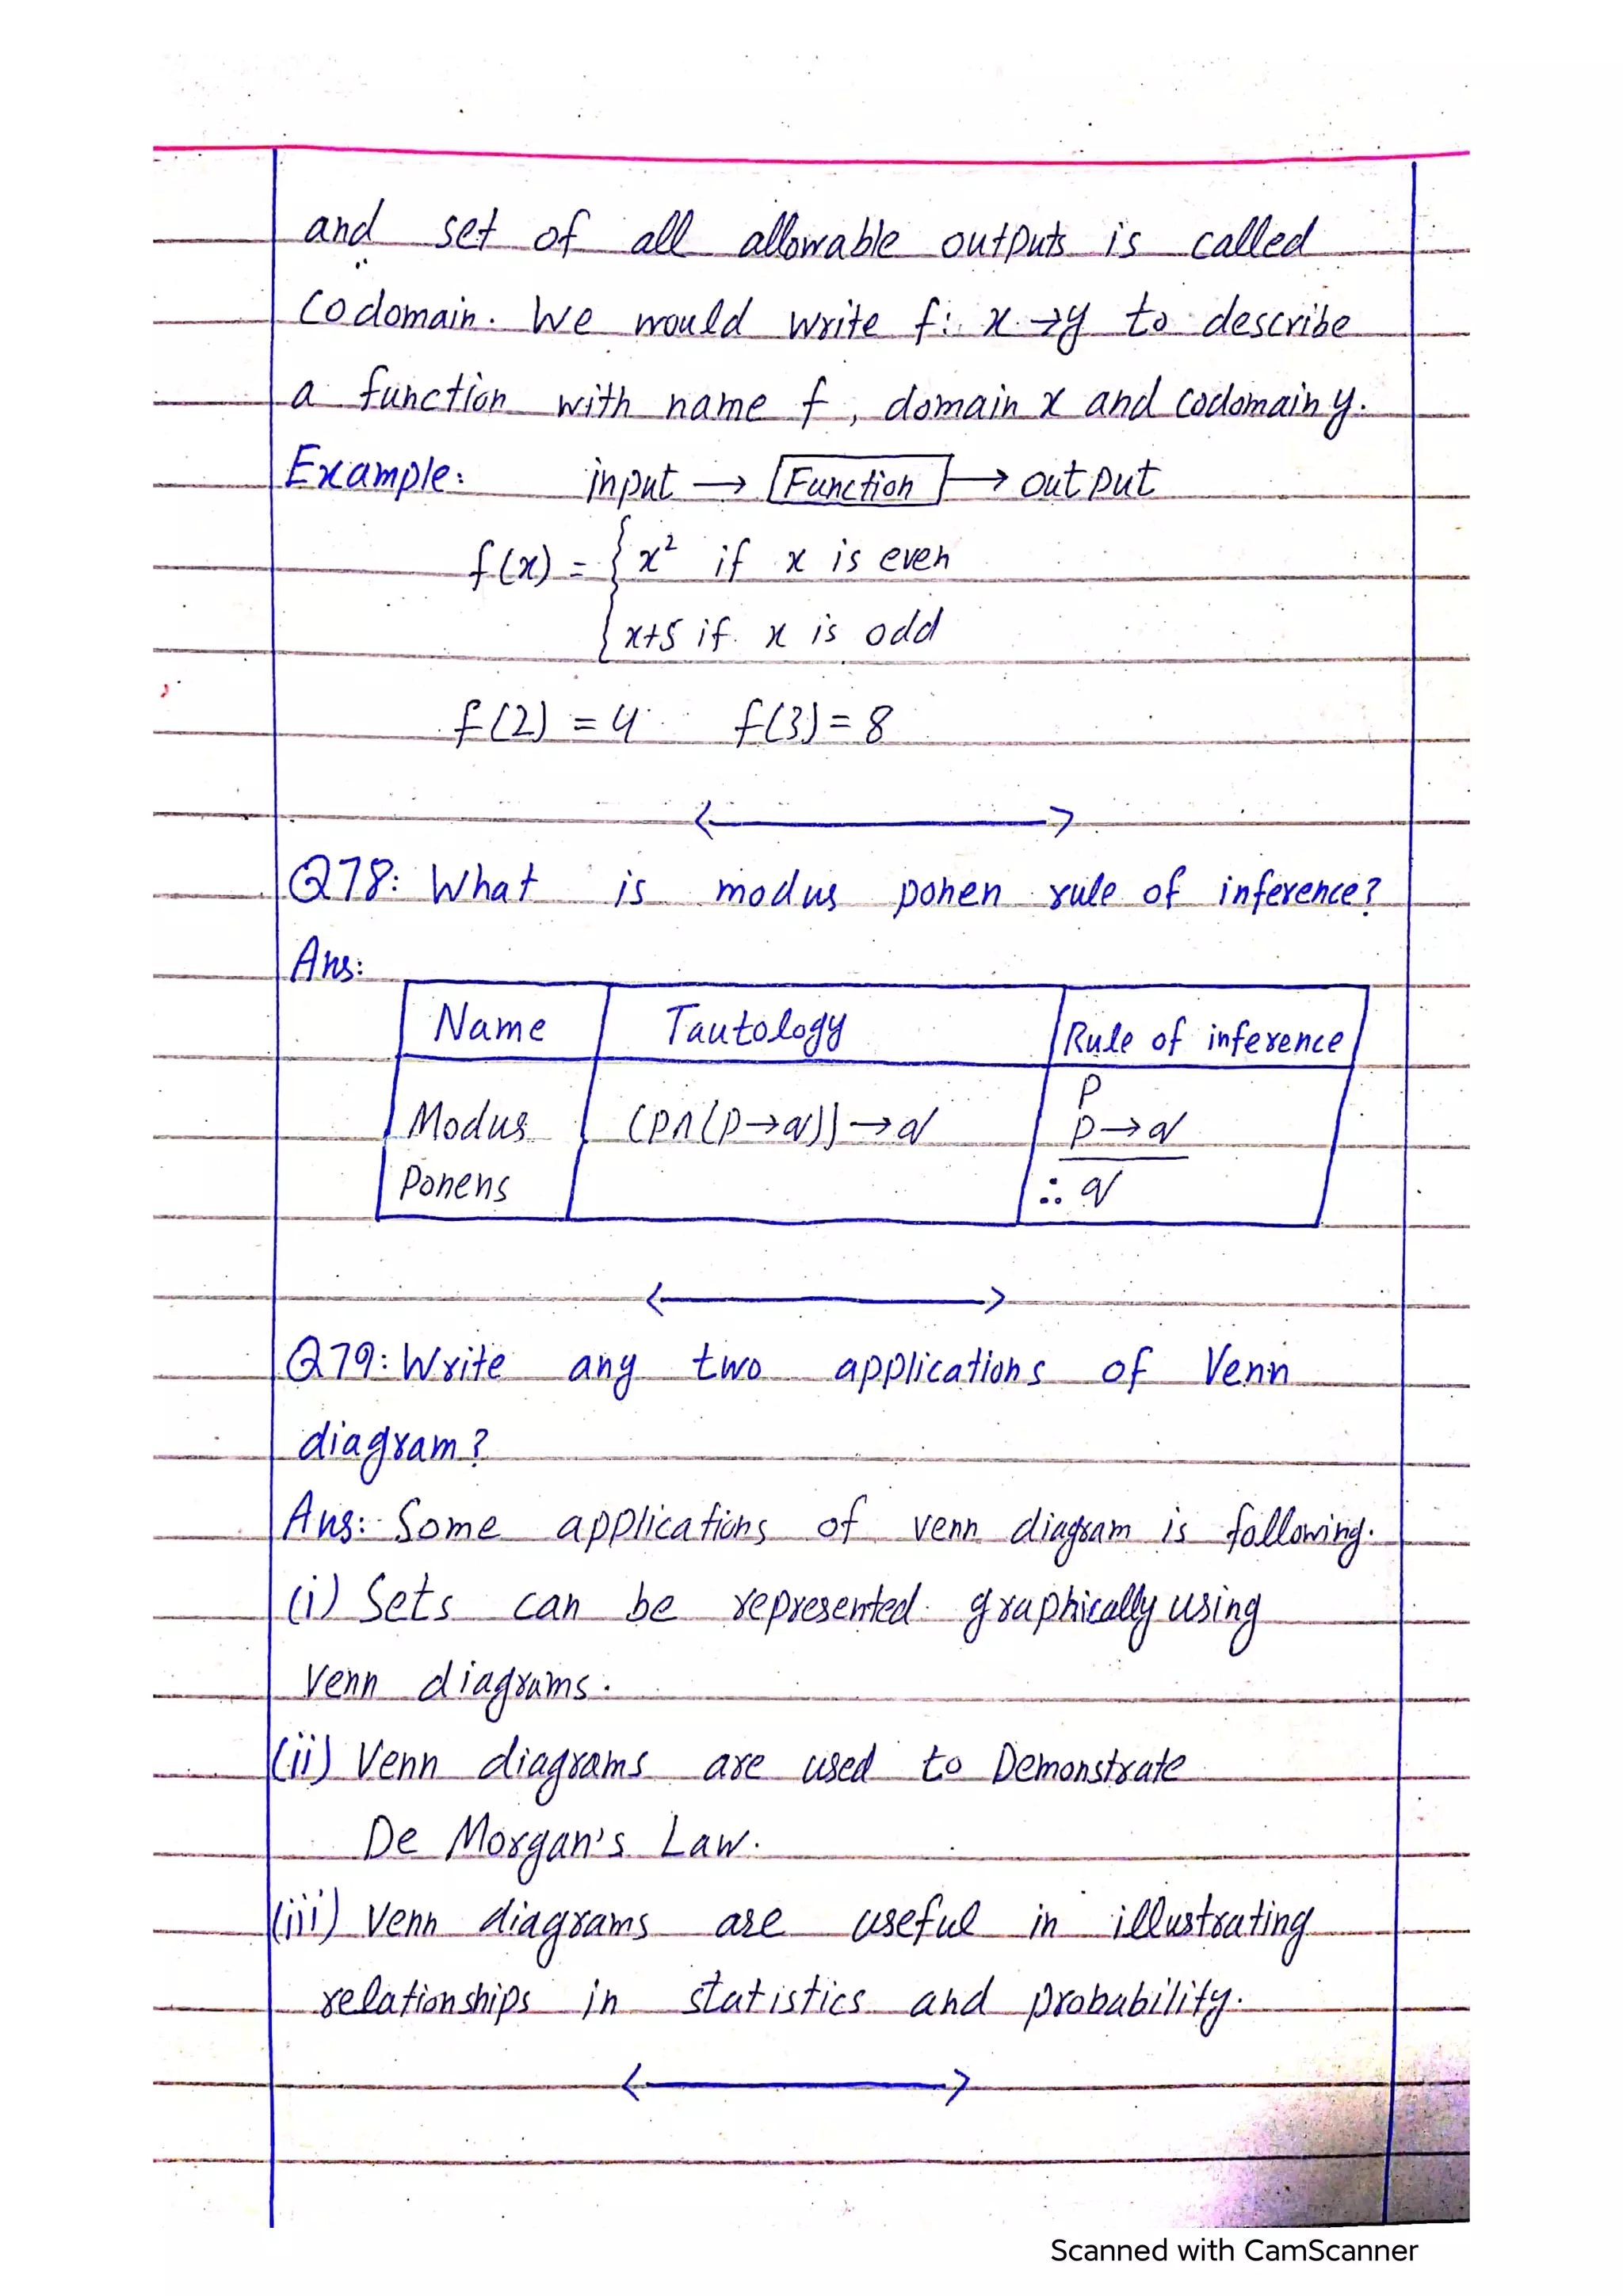 and set of all allowable outputs is called
Codomain. We would write f: x→y to describe
a function with name f, domain x and codomain y.
Example: input → Function → output
f(x) = { x² if x is even
{ x+5 if x is odd
f(2) = 4 f(3) = 8
Q78: What is modus ponen rule of inference?
Ans:
Name Tautology Rule of inference
Modus Ponens (p∧(p→q))→q p
p→q
∴ q
Q79: Write any two applications of Venn
diagram?
Ans: Some applications of venn diagram is following.
(i) Sets can be represented graphically using
Venn diagrams.
(ii) Venn diagrams are used to Demonstrate
De Morgan's Law.
(iii) Venn diagrams are useful in illustrating
relationships in statistics and probability.
Scanned with CamScanner